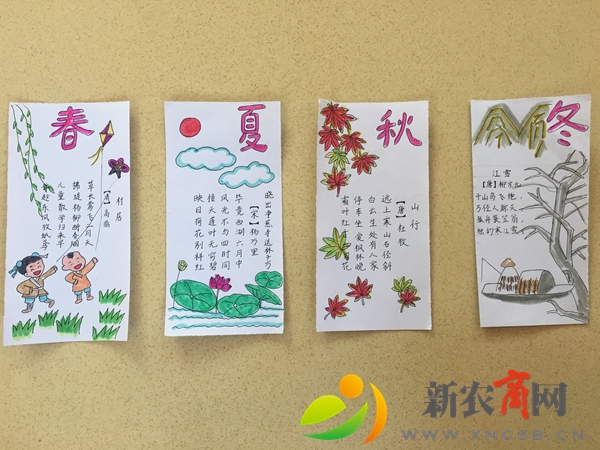 春
村居
【清】高鼎
草长莺飞二月天
拂堤杨柳醉春烟
儿童散学归来早
趁东风放纸鸢
夏
晓出净慈寺送林子方
【宋】杨万里
毕竟西湖六月中
风光不与四时同
接天莲叶无穷碧
映日荷花别样红
秋
山行
【唐】杜牧
远上寒山石径斜
白云生处有人家
停车坐爱枫林晚
霜叶红于 花
冬
江雪
【唐】柳宗元
千山鸟飞绝,
万径人踪灭。
孤舟蓑笠翁,
独钓寒江雪。
新农商网
WWW.XNCSB.CN